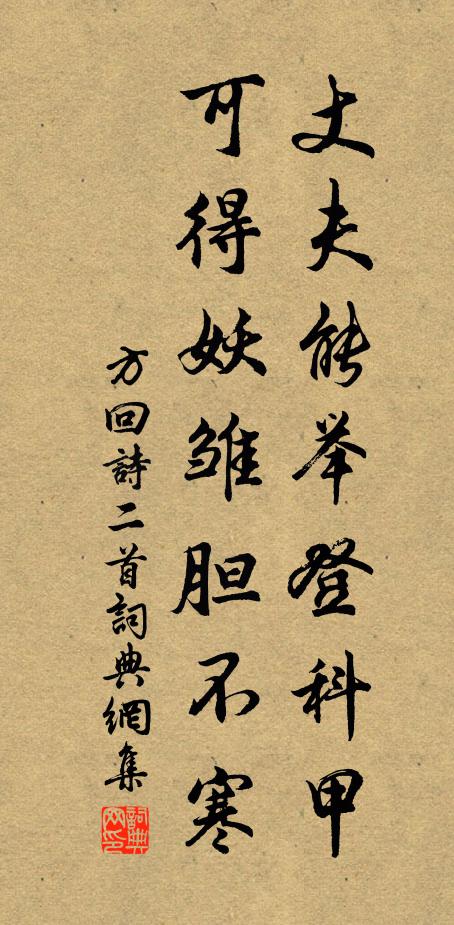 丈夫能举登科甲
可得妖雏胆不寒
方回詩二首詞典網集
詞典网印